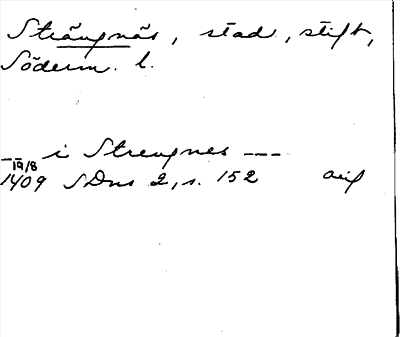 Strängnäs, stad, stift,
Söderm. l.
--- i Strengnes ---
19/8
1409 SDns 2, s. 152